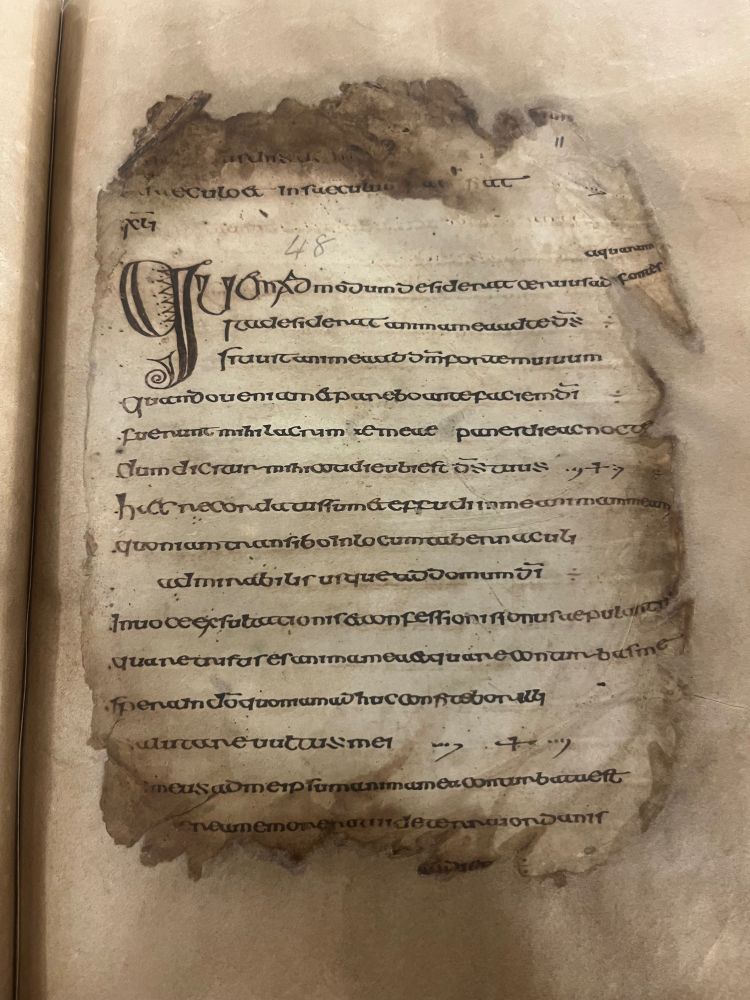 saeculo & in saeculum
XLI
48
aquarum
Quemadmodum desiderat ceruus ad fontes
Ita desiderat anima mea ad te d̅s̅
Sitiuit anima mea ad d̅m̅ fortem uiuum
Quando ueniam & parebo ante faciem d̅i̅
fuerunt mihi lacrimae meae panes die ac nocte
dum dicitur mihi cotidie ubi est d̅s̅ tuus
haec recordatus sum & effudi in me animam meam
quoniam transibo in locum tabernaculi
admirabilis usque ad domum d̅i̅
In uoce exsultationis & confessionis sonus aepulantis
quare tristis es anima mea & quare conturbas me
spera in d̅o̅ quoniam adhuc confitebor illi
salutare uultus mei
meus ad me ipsum anima mea conturbata est
memor ero tui de terra iordanis